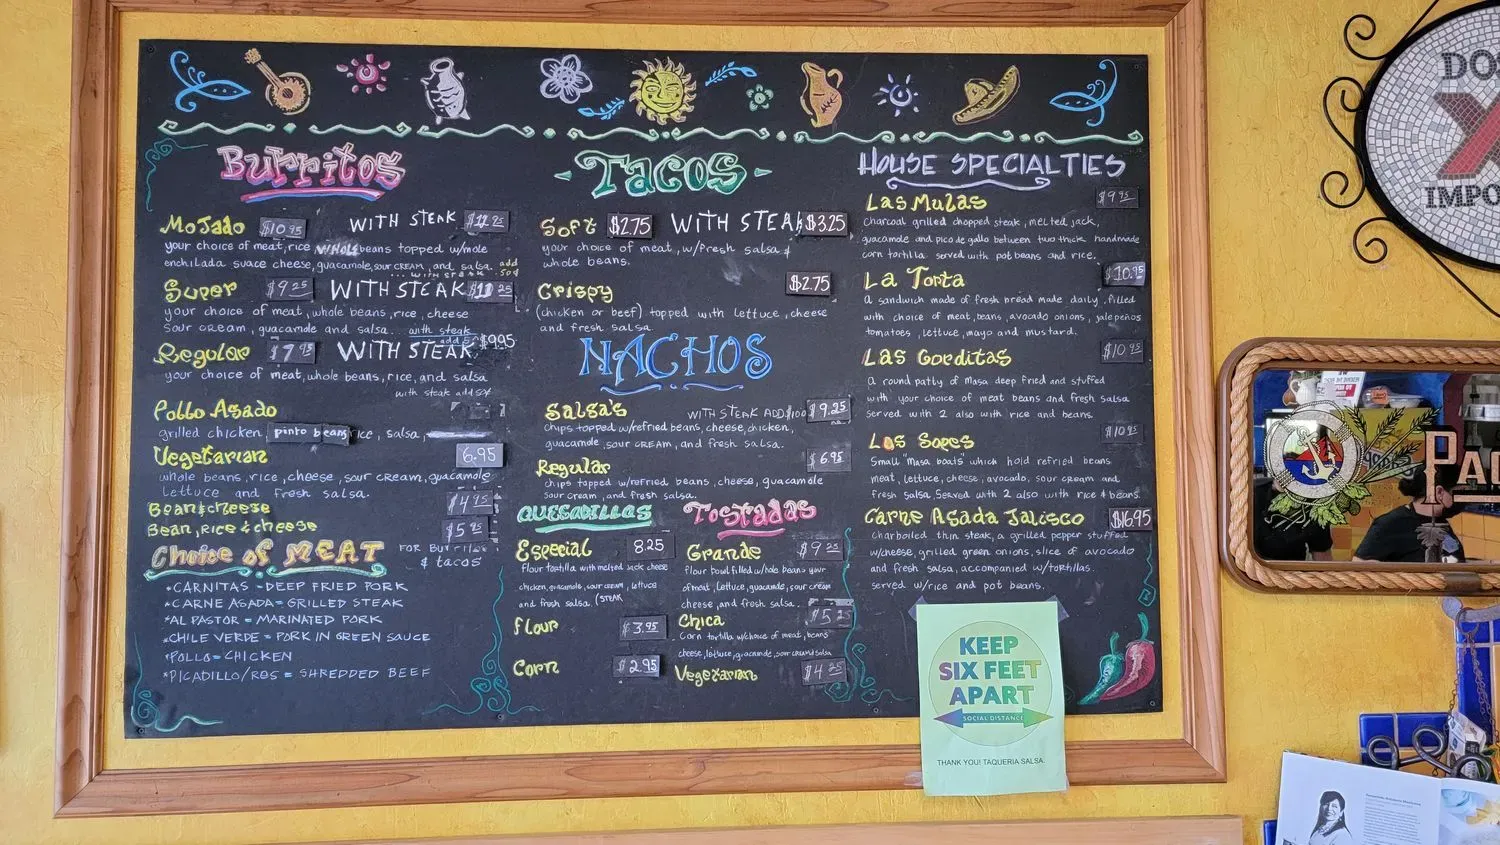 Burritos
Mojado $10.95 WITH STEAK $12.25
your choice of meat, rice whole beans topped w/mole
enchilada suace cheese, guacamole, sour cream, and salsa. add
... with steak .50¢
Super $9.25 WITH STEAK $11.25
your choice of meat, whole beans, rice, cheese
sour cream, guacamole and salsa... with steak
Regular $7.95 WITH STEAK $9.95
your choice of meat, whole beans, rice, and salsa
with steak add 50¢
Pollo Asado
grilled chicken, pinto beans rice, salsa,
Vegetarian 6.95
whole beans, rice, cheese, sour cream, guacamole
lettuce and fresh salsa.
Bean & cheese $4.95
Bean, Rice & cheese $5.95
Choice of MEAT FOR BURRITOS
& tacos
*CARNITAS - DEEP FRIED PORK
*CARNE ASADA = GRILLED STEAK
*AL PASTOR = MARINATED PORK
*CHILE VERDE = PORK IN GREEN SAUCE
*POLLO = CHICKEN
*PICADILLO/RES = SHREDDED BEEF
Tacos
Soft $2.75 WITH STEAK $3.25
your choice of meat, w/fresh salsa &
whole beans.
Crispy $2.75
(chicken or beef) topped with lettuce, cheese
and fresh salsa.
NACHOS
Salsa's WITH STEAK ADD $1.00 $9.25
chips topped w/refried beans, cheese, chicken,
guacamole, sour cream, and fresh salsa.
Regular $6.95
chips topped w/refried beans, cheese, guacamole
sour cream, and fresh salsa.
QUESADILLAS
Especial 8.25
flour tortilla with melted jack cheese
chicken, guacamole, sour cream, lettuce
and fresh salsa. (STEAK
flour $3.95
Corn $2.95
Tostadas
Grande $9.25
flour bowl filled w/hole beans your
of meat, lettuce, guacamole, sour cream
cheese, and fresh salsa.
Chica $5.25
Corn tortilla w/choice of meat, beans
cheese, lettuce, guacamole, sour cream & salsa
Vegetarian $4.25
HOUSE SPECIALTIES
Las Mulas $9.95
Charcoal grilled chopped steak, melted jack,
guacamole and pico de gallo between two thick handmade
corn tortilla served with pot beans and rice.
La Torta $10.95
a sandwich made of fresh bread made daily. filled
with choice of meat, beans, avocado onions, jalepeños
tomatoes, lettuce, mayo and mustard.
Las Gorditas $10.95
a round patty of masa deep fried and stuffed
with your choice of meat beans and fresh salsa
served with 2 also with rice and beans.
Los Sopes $10.95
Small "masa boats" which hold refried beans
meat, lettuce, cheese, avocado, sour cream and
fresh salsa. Served with 2 also with rice & beans.
Carne Asada Jalisco $16.95
charboiled thin steak, a grilled pepper stuffed
w/cheese, grilled green onions, slice of avocado
and fresh salsa, accompanied w/tortillas.
served w/rice and pot beans.
KEEP
SIX FEET
APART
SOCIAL DISTANCE
THANK YOU! TAQUERIA SALSA.
DOS
X
IMPO
PAC